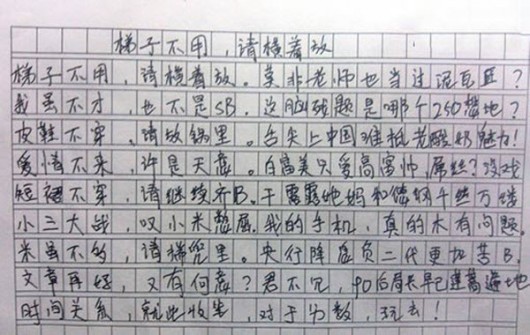 梯子不用，请横着放
梯子不用，请横着放。莫非老师也当过泥瓦匠？
我虽不才，也不是SB。这脑残题是哪个250整地？
皮鞋不穿，请放锅里。舌尖上中国难抵老酸奶魅力！
爱情不来，许是天意。白富美只爱高富帅，屌丝？没戏
短裙不穿，请继续齐B。干露露她妈和您纲千丝万缕
小三大战，叹小米憋屈。我的手机，真的木有问题。
米虽不多，请揣兜里。央行降息负二代更加苦B。
文章再好，又有何意？君不见，90后局长早已遍地
时间关系，就此收笔，对于分数，玩去！